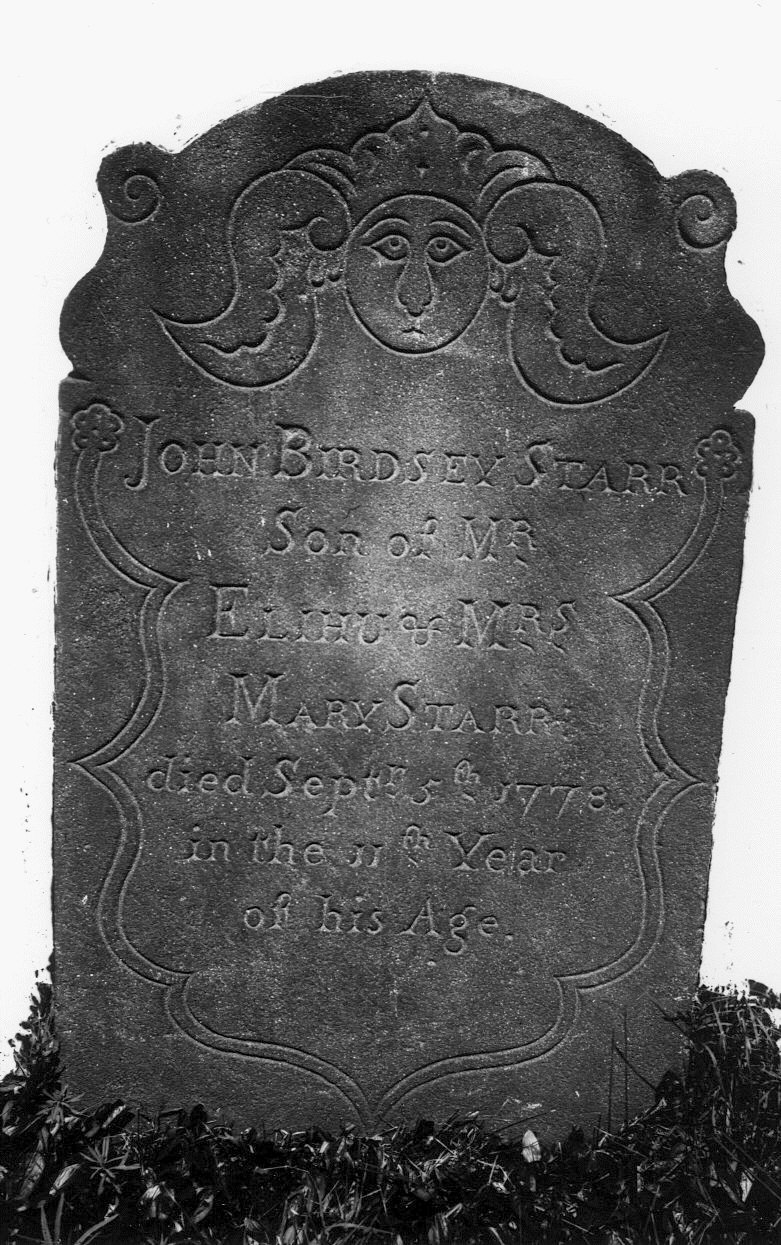 JOHN BIRDSEY STARR
Son of Mr
ELIHU & Mrs
MARY STARR:
died Septr 5th 1778.
in the 11th Year
of his Age.